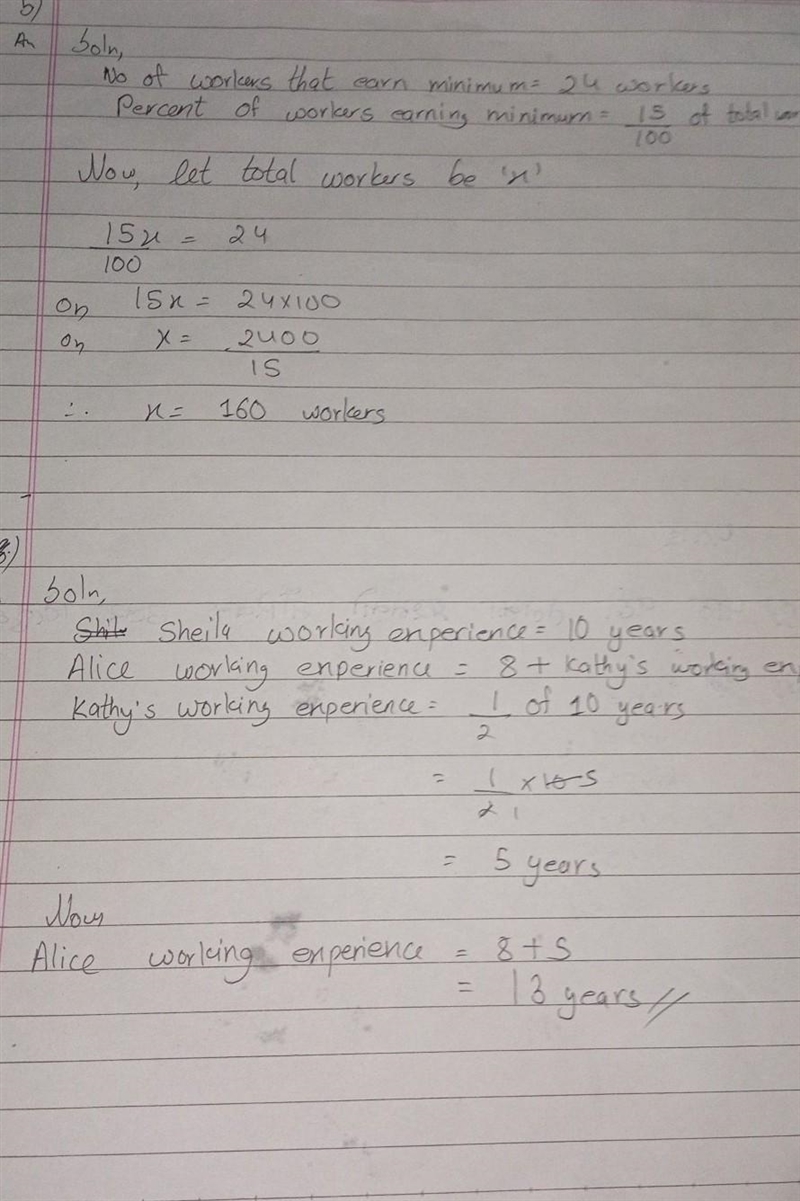 b)
An Soln,
No of workers that earn minimum = 24 workers
Percent of workers earning minimum = 15/100 of total
Now, let total workers be 'x'
15x/100 = 24
Or 15x = 24x100
Or x = 2400/15
∴ x = 160 workers
8.)
Soln,
Sheila working enperience = 10 years
Alice working enperience = 8 + Kathy's working en
Kathy's working enperience = 1/2 of 10 years
= 1/2 x 10 5
1
= 5 years
Now
Alice working enperience = 8 + 5
= 13 years //